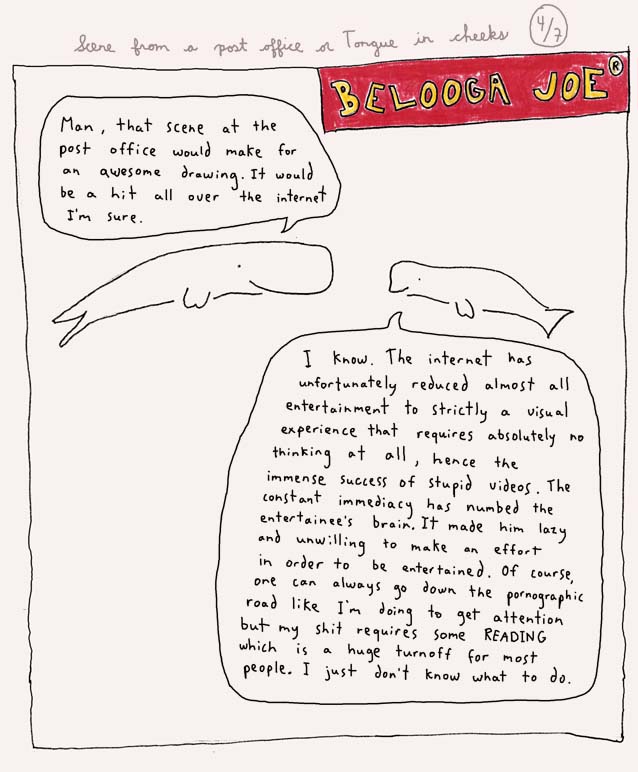 Scene from a post office or Tongue in cheeks 4/7
BELOOGA JOE®
Man, that scene at the
post office would make for
an awesome drawing. It would
be a hit all over the internet
I'm sure.
I know. The internet has
unfortunately reduced almost all
entertainment to strictly a visual
experience that requires absolutely no
thinking at all, hence the
immense success of stupid videos. The
constant immediacy has numbed the
entertainee's brain. It made him lazy
and unwilling to make an effort
in order to be entertained. Of course,
one can always go down the pornographic
road like I'm doing to get attention
but my shit requires some READING
which is a huge turnoff for most
people. I just don't know what to do.